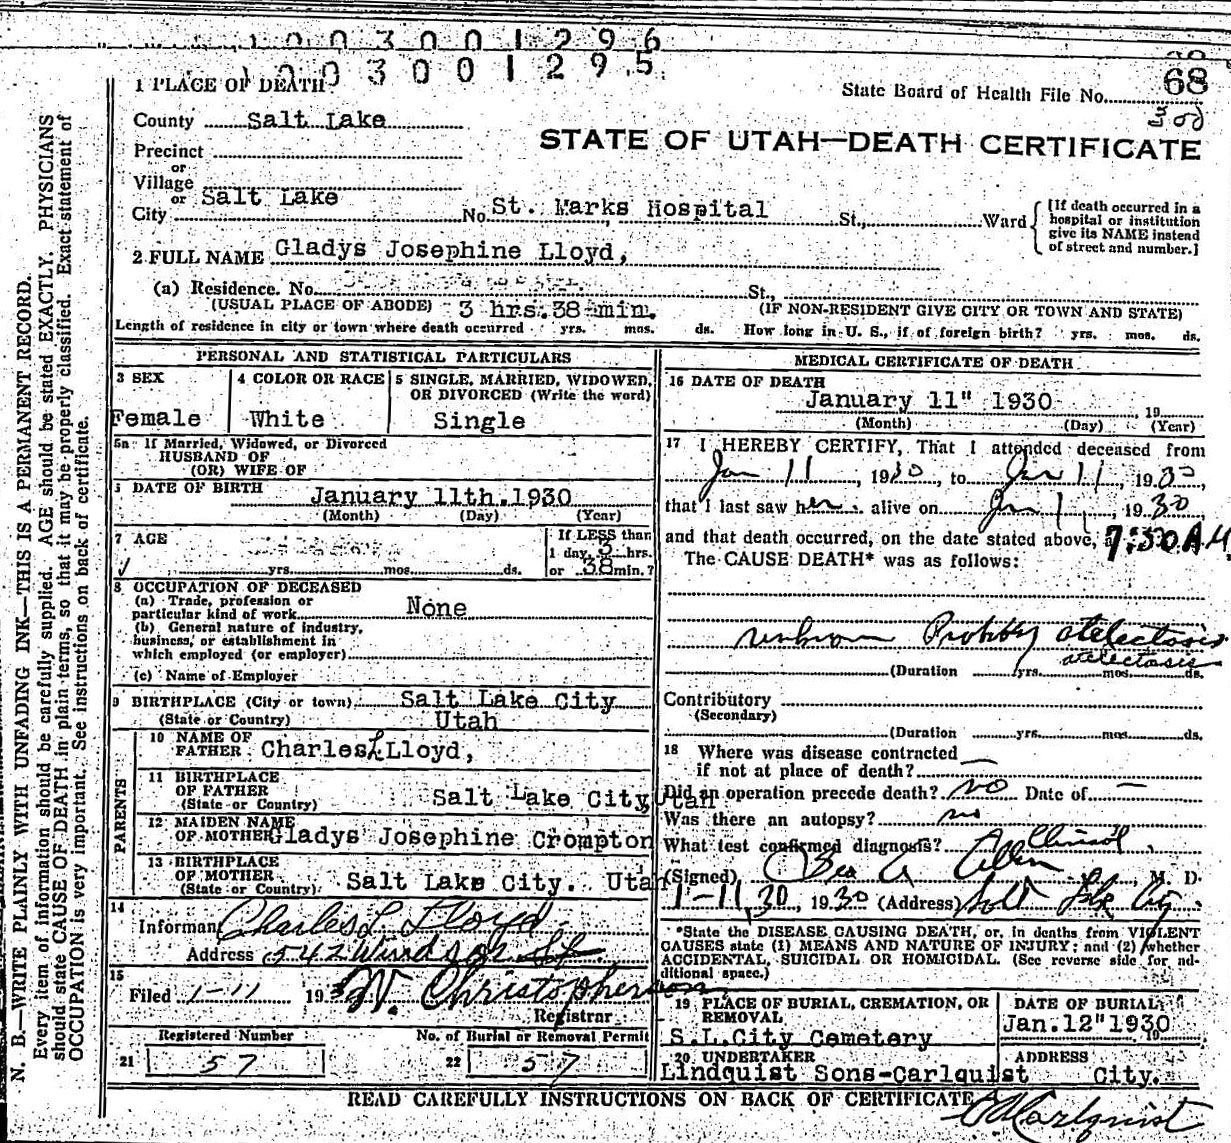 1003001296
1003001295
1 PLACE OF DEATH
State Board of Health File No. 68
County Salt Lake
STATE OF UTAH—DEATH CERTIFICATE
Precinct
or
Village
or
City Salt Lake No. St. Marks Hospital St., Ward
[If death occurred in a
hospital or institution
give its NAME instead
of street and number.]
2 FULL NAME Gladys Josephine Lloyd,
(a) Residence. No. St.,
(USUAL PLACE OF ABODE) 3 hrs. 38 min. (IF NON-RESIDENT GIVE CITY OR TOWN AND STATE)
Length of residence in city or town where death occurred yrs. mos. ds. How long in U. S., if of foreign birth? yrs. mos. ds.
PERSONAL AND STATISTICAL PARTICULARS
3 SEX
Female
4 COLOR OR RACE
White
5 SINGLE, MARRIED, WIDOWED,
OR DIVORCED (Write the word)
Single
5a If Married, Widowed, or Divorced
HUSBAND OF
(OR) WIFE OF
DATE OF BIRTH January 11th. 1930
(Month) (Day) (Year)
7 AGE
yrs. mos. ds.
If LESS than
1 day, 3 hrs.
or 38 min.?
8 OCCUPATION OF DECEASED
(a) Trade, profession or
particular kind of work None
(b) General nature of industry,
business, or establishment in
which employed (or employer)
(c) Name of Employer
9 BIRTHPLACE (City or town) Salt Lake City
(State or Country) Utah
PARENTS
10 NAME OF
FATHER Charles L Lloyd,
11 BIRTHPLACE
OF FATHER
(State or Country) Salt Lake City Utah
12 MAIDEN NAME
OF MOTHER Gladys Josephine Crompton
13 BIRTHPLACE
OF MOTHER
(State or Country) Salt Lake City. Utah
14
Informant Charles L Lloyd
Address 542 Windsor St
15
Filed 1-11 193 W. Christopherson
Registrar
Registered Number
21 57
No. of Burial or Removal Permit
22 57
MEDICAL CERTIFICATE OF DEATH
16 DATE OF DEATH
January 11" 1930 , 19
(Month) (Day) (Year)
17 I HEREBY CERTIFY, That I attended deceased from
Jan 11, 1930, to Jan 11, 1930,
that I last saw her alive on Jan 11, 1930
and that death occurred, on the date stated above, at 7:30 A.M.
The CAUSE DEATH* was as follows:
unknown Probably atelectasis
atelectasis
(Duration yrs. mos. ds.
Contributory
(Secondary)
(Duration yrs. mos. ds.
18 Where was disease contracted
if not at place of death? —
Did an operation precede death? no Date of —
Was there an autopsy? no
What test confirmed diagnosis? Clinical
(Signed) Geo A Allen, M. D.
1-11, 30, 1930 (Address) Salt Lake City
*State the DISEASE CAUSING DEATH, or, in deaths from VIOLENT
CAUSES state (1) MEANS AND NATURE OF INJURY; and (2) whether
ACCIDENTAL, SUICIDAL OR HOMICIDAL. (See reverse side for ad-
ditional space.)
19 PLACE OF BURIAL, CREMATION, OR
REMOVAL
S.L.City Cemetery
DATE OF BURIAL
Jan. 12" 1930
19
20 UNDERTAKER
Lindquist Sons-Carlquist
ADDRESS
City.
READ CAREFULLY INSTRUCTIONS ON BACK OF CERTIFICATE
Carlquist
N. B.—WRITE PLAINLY WITH UNFADING INK—THIS IS A PERMANENT RECORD.
Every item of information should be carefully supplied. AGE should be stated EXACTLY. PHYSICIANS
should state CAUSE OF DEATH in plain terms, so that it may be properly classified. Exact statement of
OCCUPATION is very important. See instructions on back of certificate.